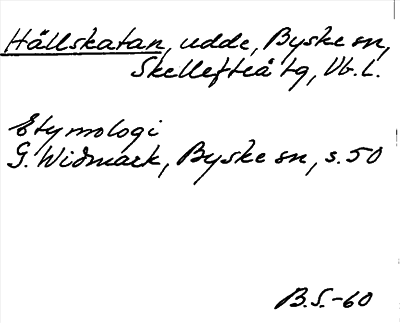 Hällskatan, udde, Byske sn,
Skellefteå tg, Vb. L.
Etymologi
G. Widmark, Byske sn, s. 50
B.S.-60